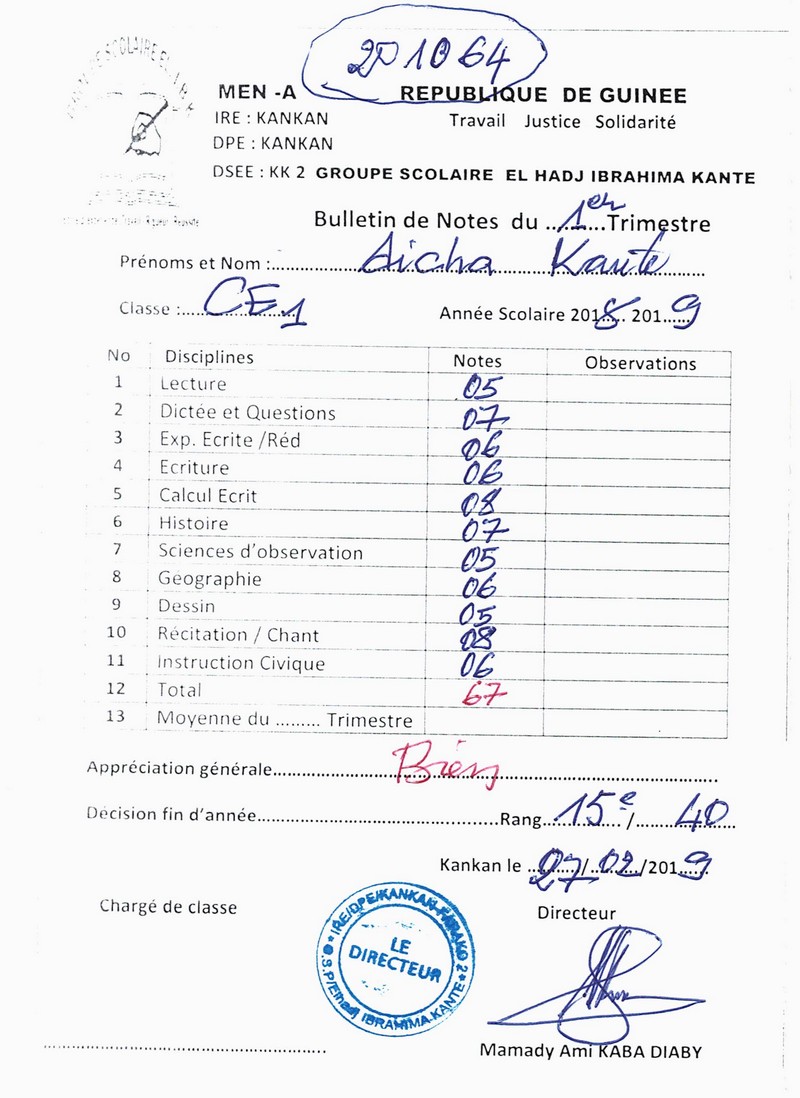 201064
MEN -A
REPUBLIQUE DE GUINEE
IRE : KANKAN
Travail Justice Solidarité
DPE : KANKAN
DSEE : KK 2 GROUPE SCOLAIRE EL HADJ IBRAHIMA KANTE
Bulletin de Notes du ..1er..Trimestre
Prénoms et Nom :.......Aicha Kante.......
Classe :....CE1....
Année Scolaire 2018.. 2019
No Disciplines Notes Observations
1 Lecture 05
2 Dictée et Questions 07
3 Exp. Ecrite /Réd 06
4 Ecriture 06
5 Calcul Ecrit 08
6 Histoire 07
7 Sciences d'observation 05
8 Géographie 06
9 Dessin 05
10 Récitation / Chant 08
11 Instruction Civique 06
12 Total 67
13 Moyenne du ......... Trimestre
Appréciation générale.......Bien.......
Décision fin d'année.......Rang..15e../..40..
Kankan le ..27../..02../2019
Chargé de classe
Directeur
IRE/DPE/KANKAN-FARAKO 2
LE
DIRECTEUR
G.S.P/Elhadj IBRAHIMA KANTE
Mamady Ami KABA DIABY